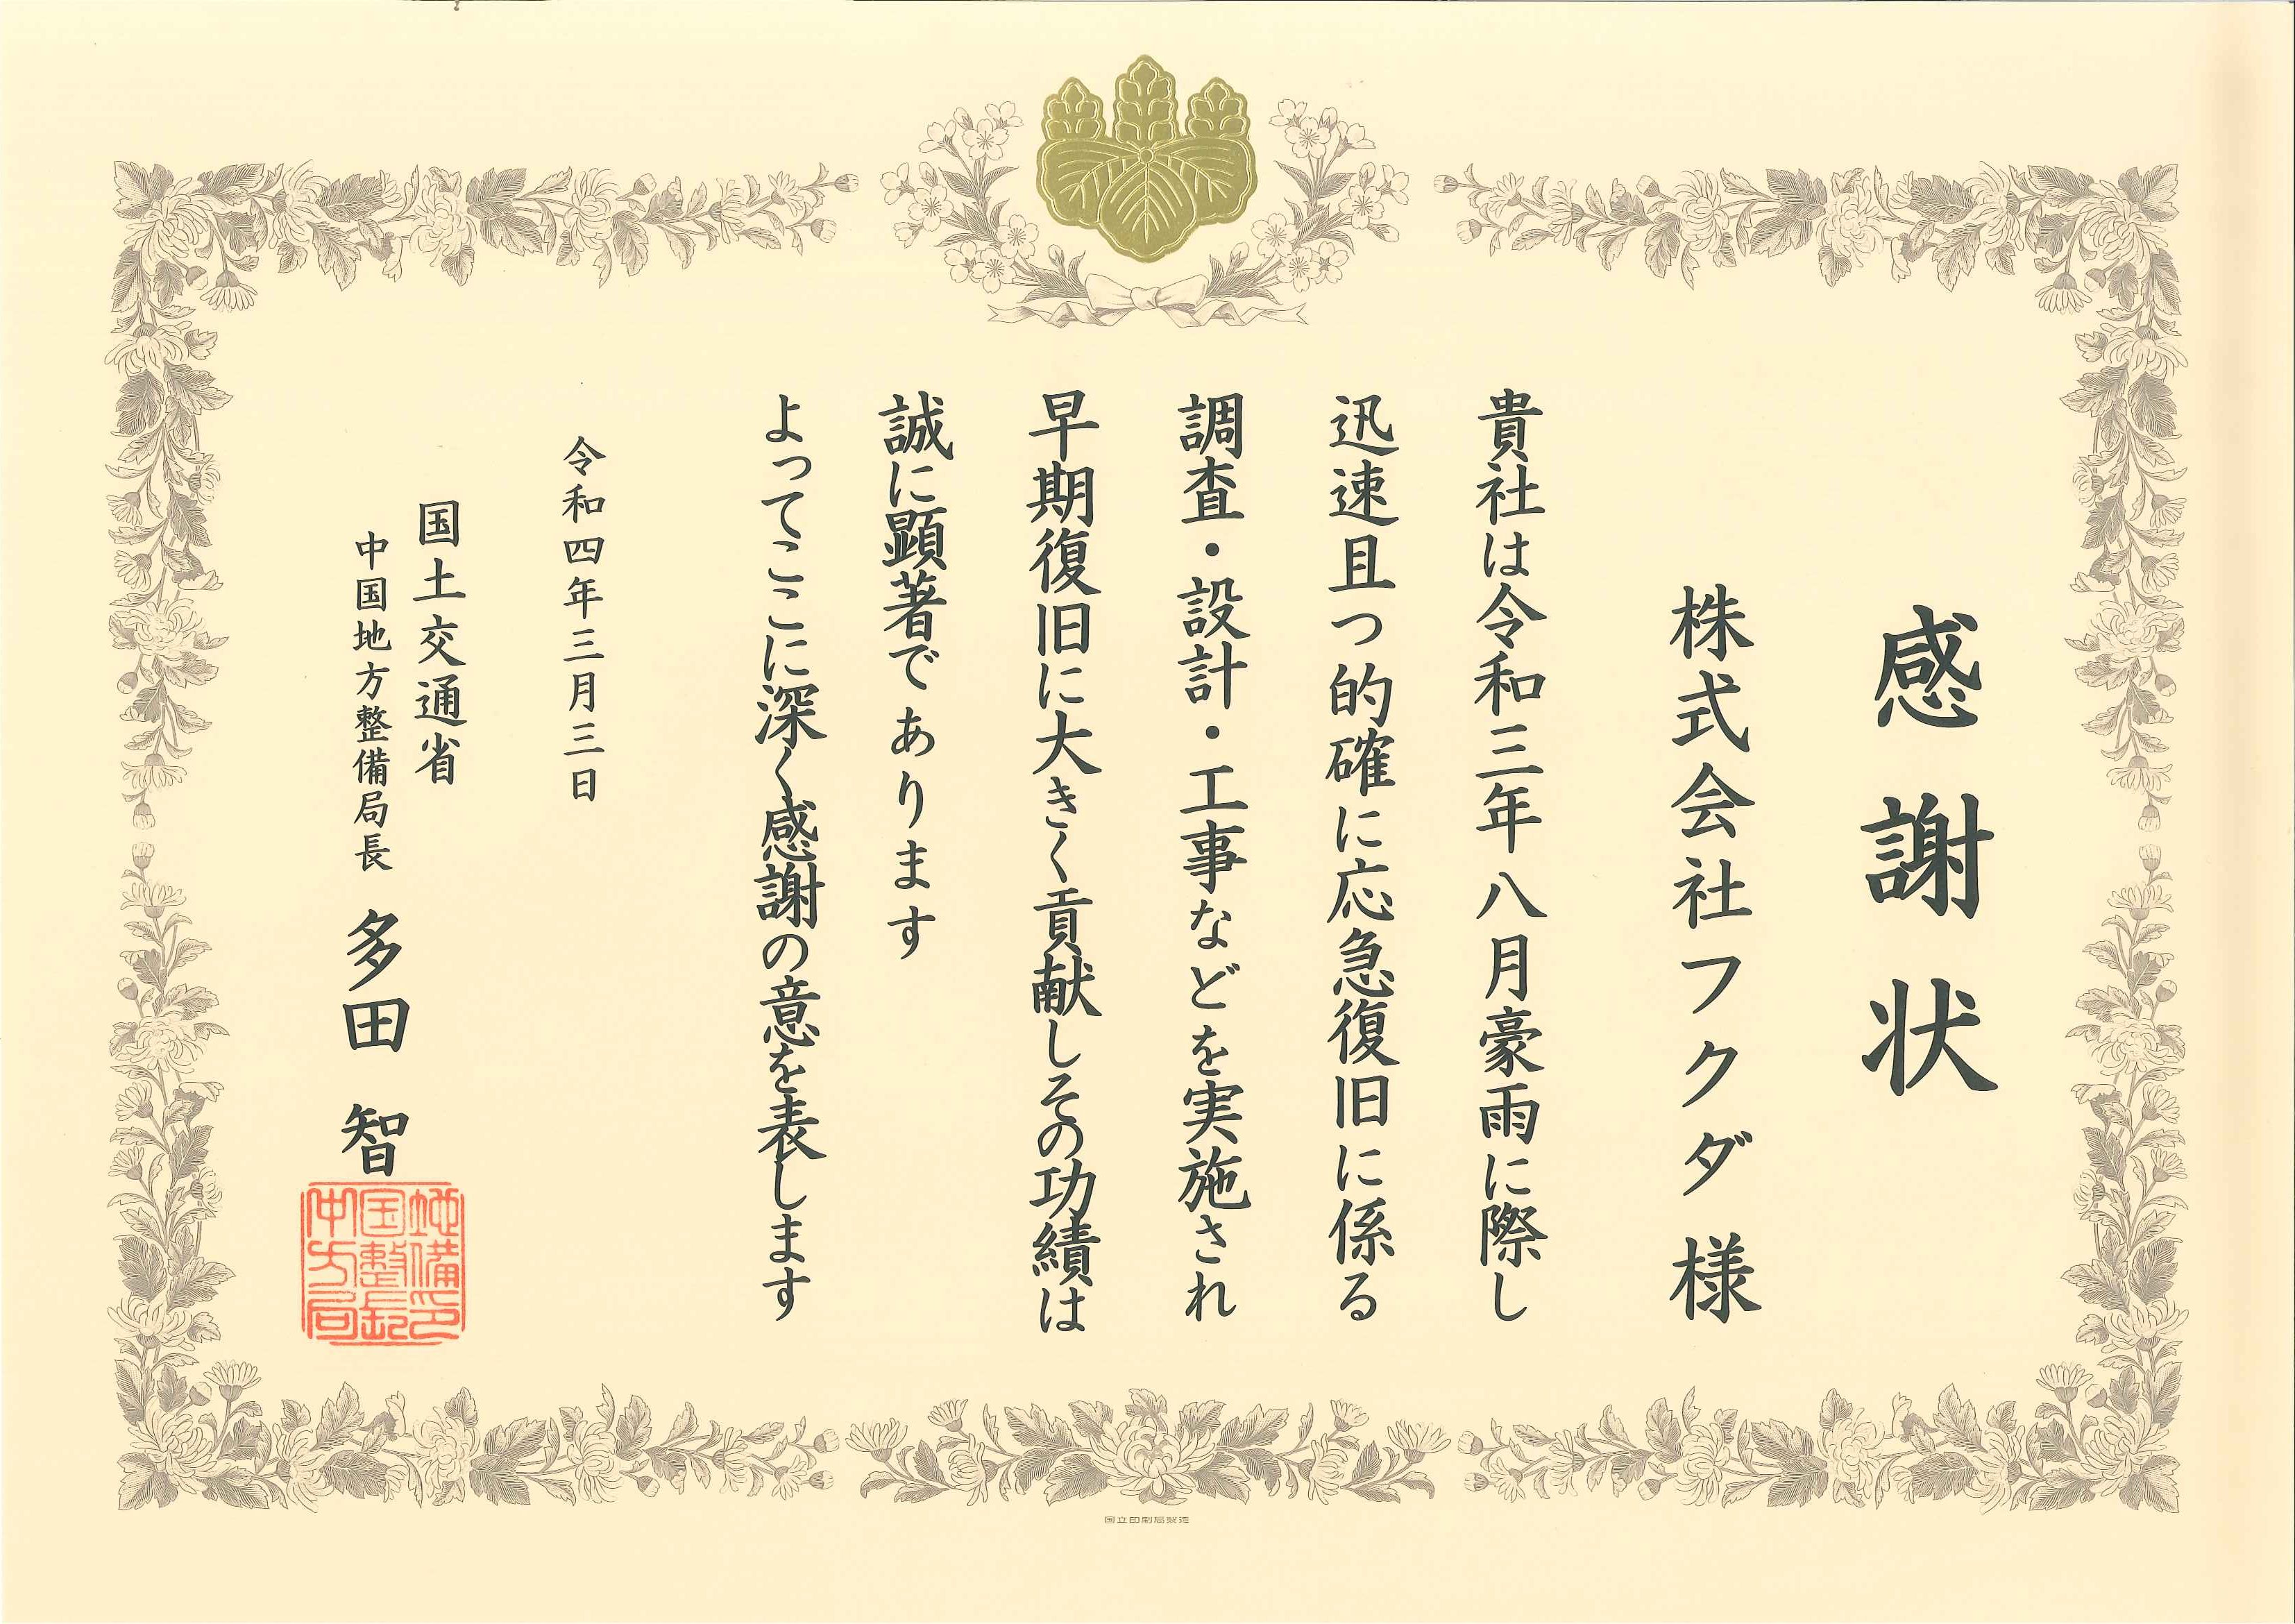 感謝状
株式会社フクダ様
貴社は令和三年八月豪雨に際し
迅速且つ的確に応急復旧に係る
調査・設計・工事などを実施され
早期復旧に大きく貢献しその功績は
誠に顕著であります
よってここに深く感謝の意を表します
令和四年三月三日
国土交通省
中国地方整備局長 多田 智
中国地方整備局長印
国立印刷局製造